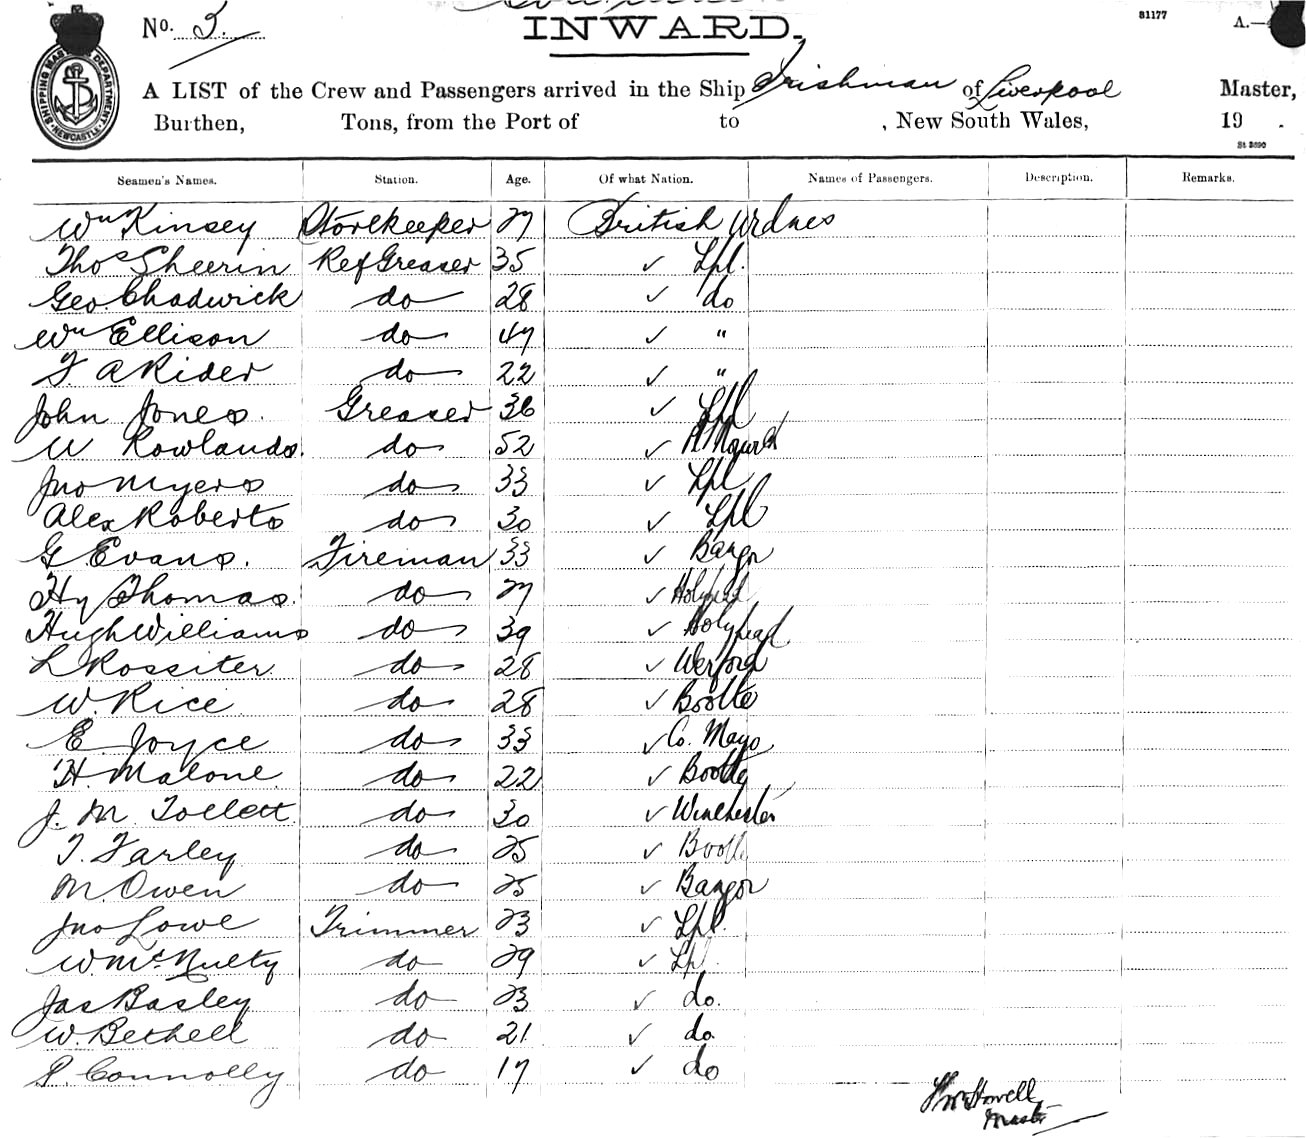 No. 3
INWARD.
81177
A.—
SHIPPING MASTER'S DEPARTMENT NEWCASTLE
A LIST of the Crew and Passengers arrived in the Ship Irishman of Liverpool Master,
Burthen, Tons, from the Port of to , New South Wales, 19 .
Seamen's Names. Station. Age. Of what Nation. Names of Passengers. Description. Remarks.
Wm Kinsey Storekeeper 27 British
Thos Sheerin Ref Greaser 35 ✓ Lpl.
Geo. Chadwick do 28 ✓ do
Wm Ellison do 47 ✓ "
F A Rider do 22 ✓ "
John Jones. Greaser 36 ✓ Lpl
W Rowlands. do 52 ✓
Jno Myers do 33 ✓ Lpl
Alex Roberts do 30 ✓ Lpl
G. Evans. Fireman 33 ✓ Bangor
Hy Thomas. do 27 ✓ Holyhead
Hugh Williams do 39 ✓ Holyhead
L Rossiter. do 28 ✓ Wexford
W. Rice do 28 ✓ Bootle
E. Joyce do 33 ✓ Co. Mayo
H. Malone do 22 ✓ Bootle
J. M Tollett. do 30 ✓ Winchester
T. Farley do 25 ✓ Bootle
M. Owen do 25 ✓ Bangor
Jno Lowe Trimmer 23 ✓ Lpl.
W. McNulty do 29 ✓ Lpl.
Jas Basley do 23 ✓ do.
W. Bethell do 21 ✓ do.
P. Connolly do 17 ✓ do
Howell
Master